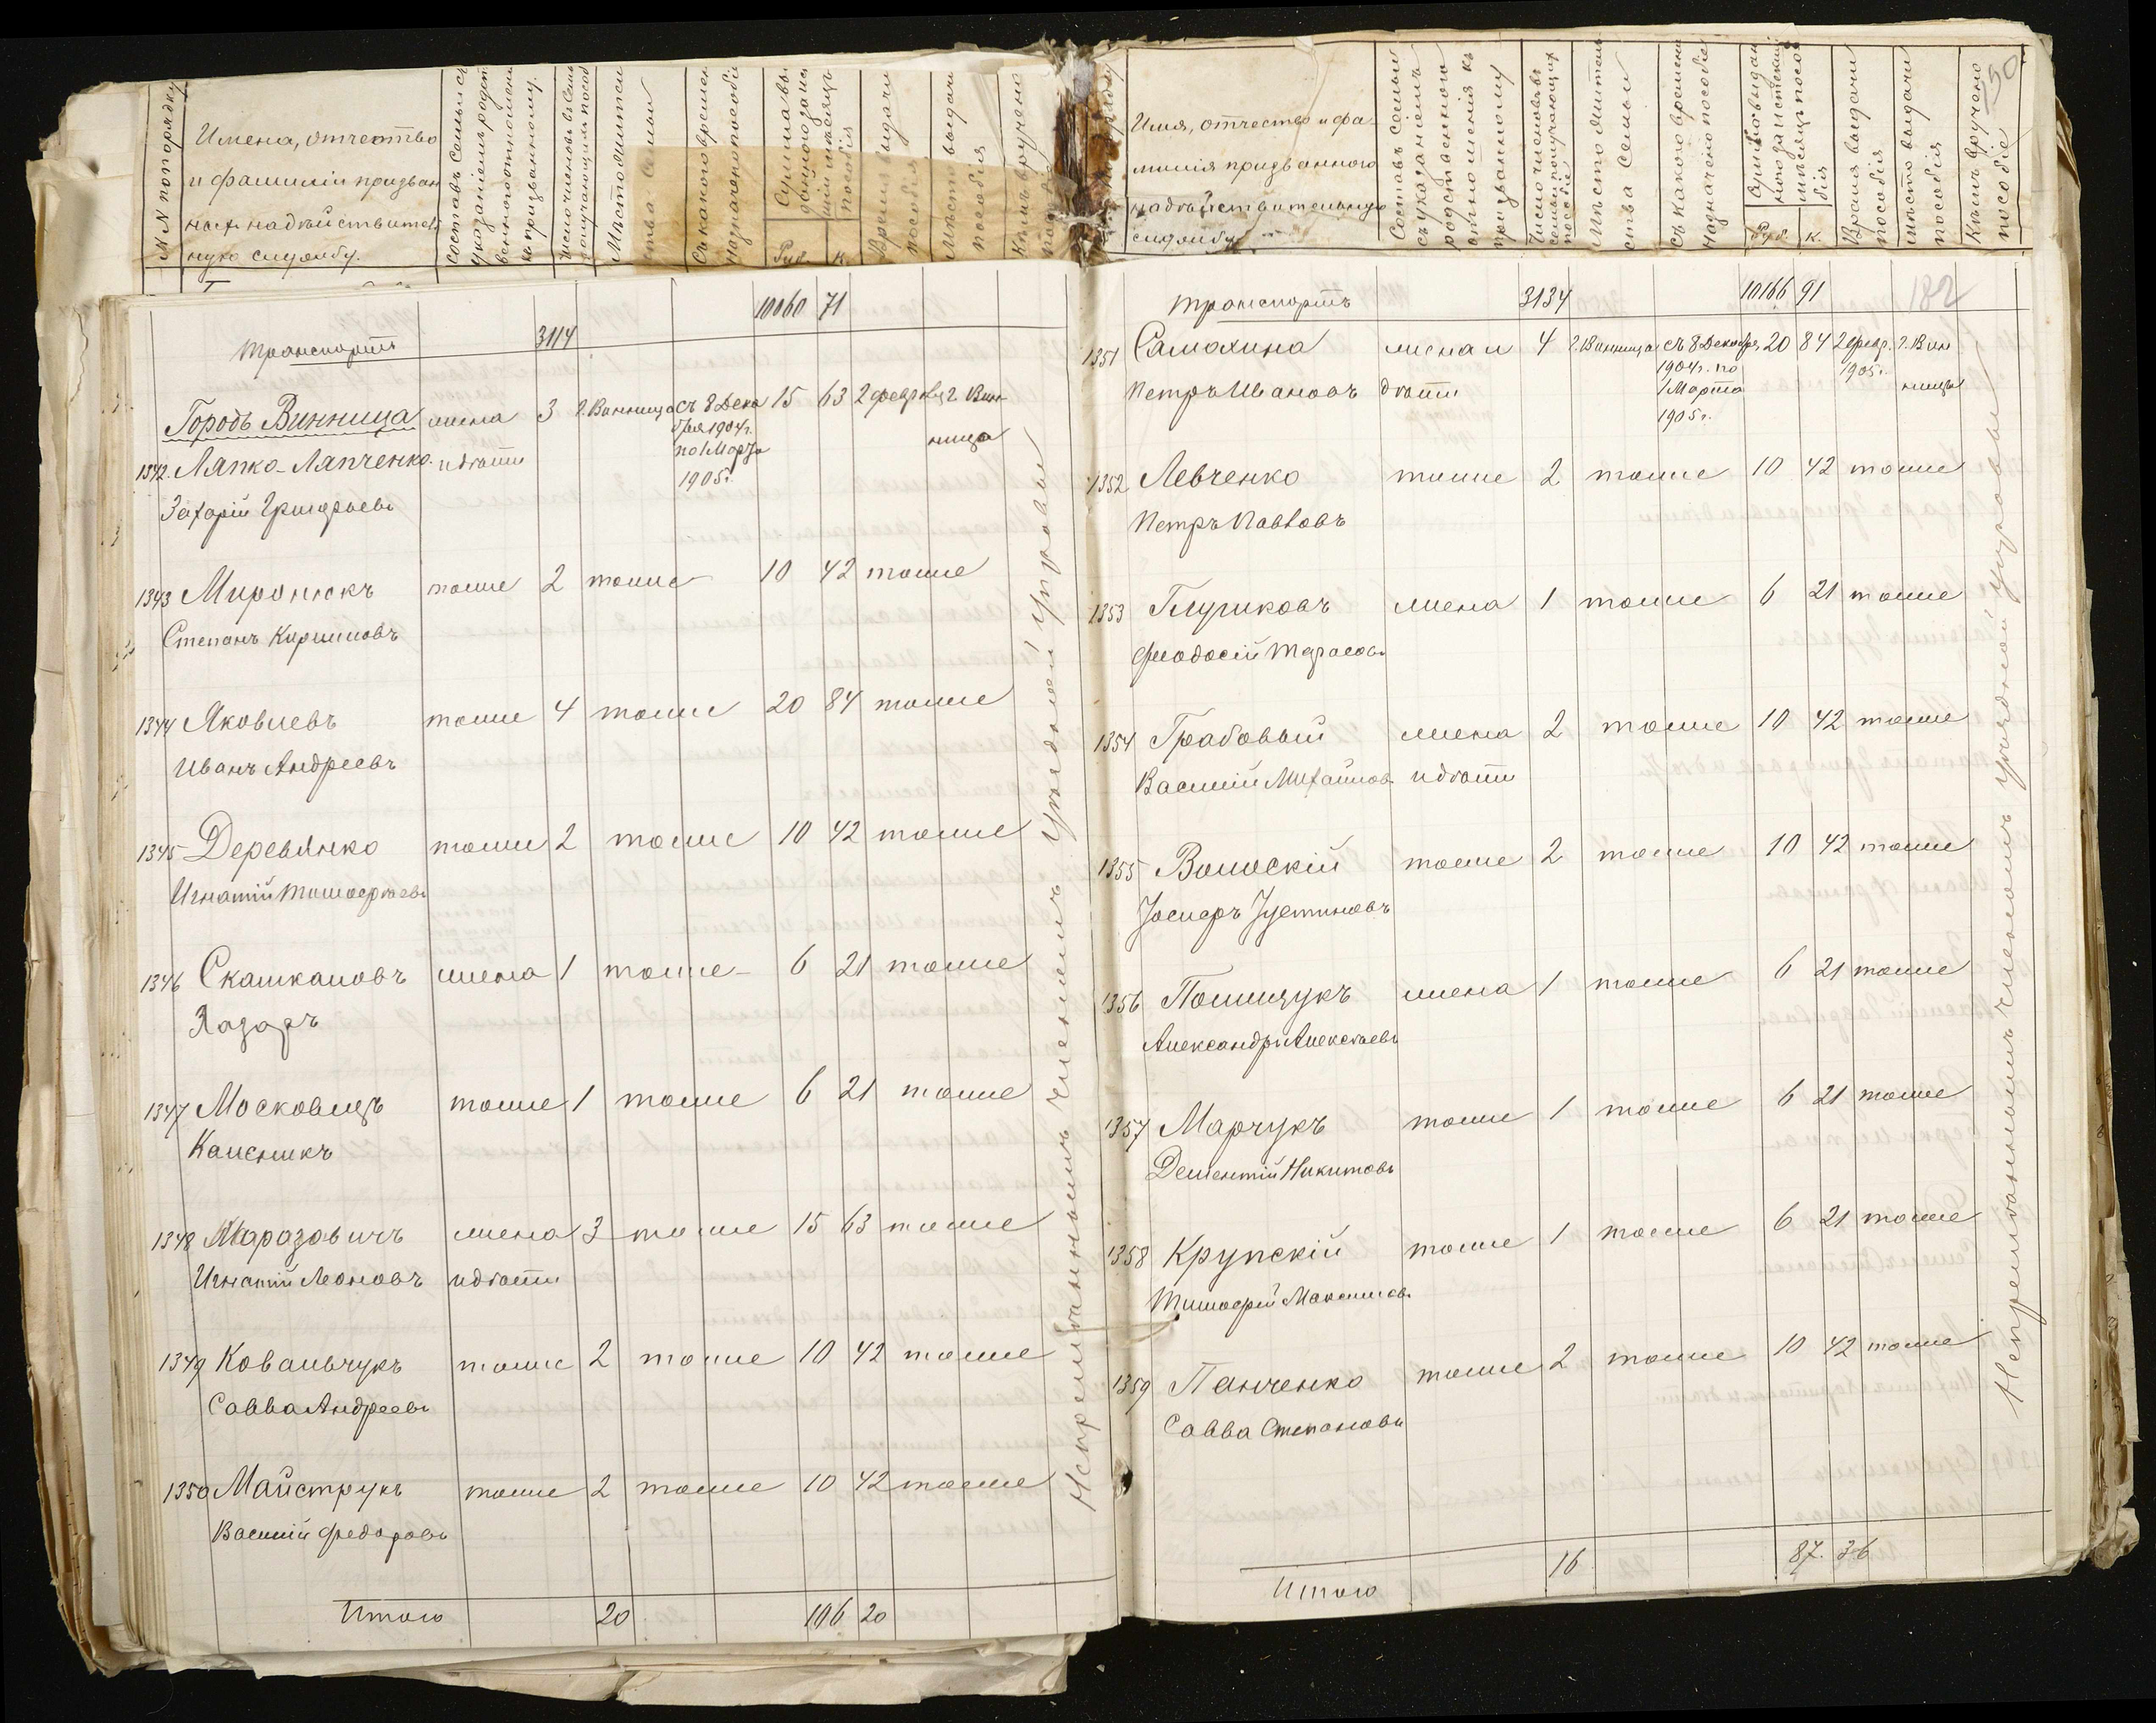 №№ по порядку
Имена, отчество
и фамиліи призван
ныхъ на дѣйствитель
ную службу.
Составъ семьи съ
указаніемъ родст
веннаго отношенія
къ призванному.
Мѣсто житель
ства семьи
Съ какого времени
назначено пособіе
Руб. К.
Время выдачи
пособія
Мѣсто выдачи
пособія
Кѣмъ вручено
Транспортъ 3114 10060 71
Городъ Винница жена 3 г. Винница съ 8 Дека 15 63 2 февраля г. Вин
бря 1904 г. ница
1342. Ляпко-Ляпченко и дѣти по 1 Марта
1905 г.
Захарій Григорьевъ
1343 Миронюкъ тоже 2 тоже 10 42 тоже
Степанъ Кириловъ
1344 Яковлевъ тоже 4 тоже 20 84 тоже
Иванъ Андреевъ
1345 Деревянко тоже 2 тоже 10 42 тоже
Игнатій Тимофеевъ
1346 Скашкаловъ жена 1 тоже 6 21 тоже
Лазарь
1347 Московицъ тоже 1 тоже 6 21 тоже
Калсникъ
1348 Маразовичъ жена 3 тоже 15 63 тоже
Игнатій Леоновъ и дѣти
1349 Ковальчукъ тоже 2 тоже 10 42 тоже
Савва Андреевъ
1350 Майструкъ тоже 2 тоже 10 42 тоже
Василій Федоровъ
Итого 20 106 20
Непремѣннымъ членомъ уѣздной управы
50
Имя, отчество и фа
милія призваннаго
на дѣйствительную
службу
Составъ семьи
съ указаніемъ
родственнаго
отношенія къ
призванному
Число членовъ
семьи получающихъ
пособіе
Мѣсто житель
ства семьи
Съ какого времени
назначено пособіе
Руб. К.
Время выдачи
пособія
Мѣсто выдачи
пособія
Кѣмъ вручено
пособіе
182
Транспортъ 3134 10166 91
1351 Самохина жена и 4 г. Винница съ 8 Декабря 20 84 2 февр. г. Вин
1904 г. по 1905 г.
Петръ Ивановъ дѣти 1 Марта ница
1905 г.
1352 Левченко тоже 2 тоже 10 42 тоже
Петръ Павловъ
1353 Глушковъ жена 1 тоже 6 21 тоже
Феодосій Тарасовъ
1354 Грабовый жена 2 тоже 10 42 тоже
Василій Михайловъ и дѣти
1355 Волоскій тоже 2 тоже 10 42 тоже
Іосифъ Іустиновъ
1356 Полищукъ жена 1 тоже 6 21 тоже
Александръ Алексѣевъ
1357 Марчукъ тоже 1 тоже 6 21 тоже
Дементій Никитовъ
1358 Крупскій тоже 1 тоже 6 21 тоже
Тимофей Максимовъ
1359 Панченко тоже 2 тоже 10 42 тоже
Савва Степановъ
Итого 16 87. 36
Непремѣннымъ членомъ уѣздной управы